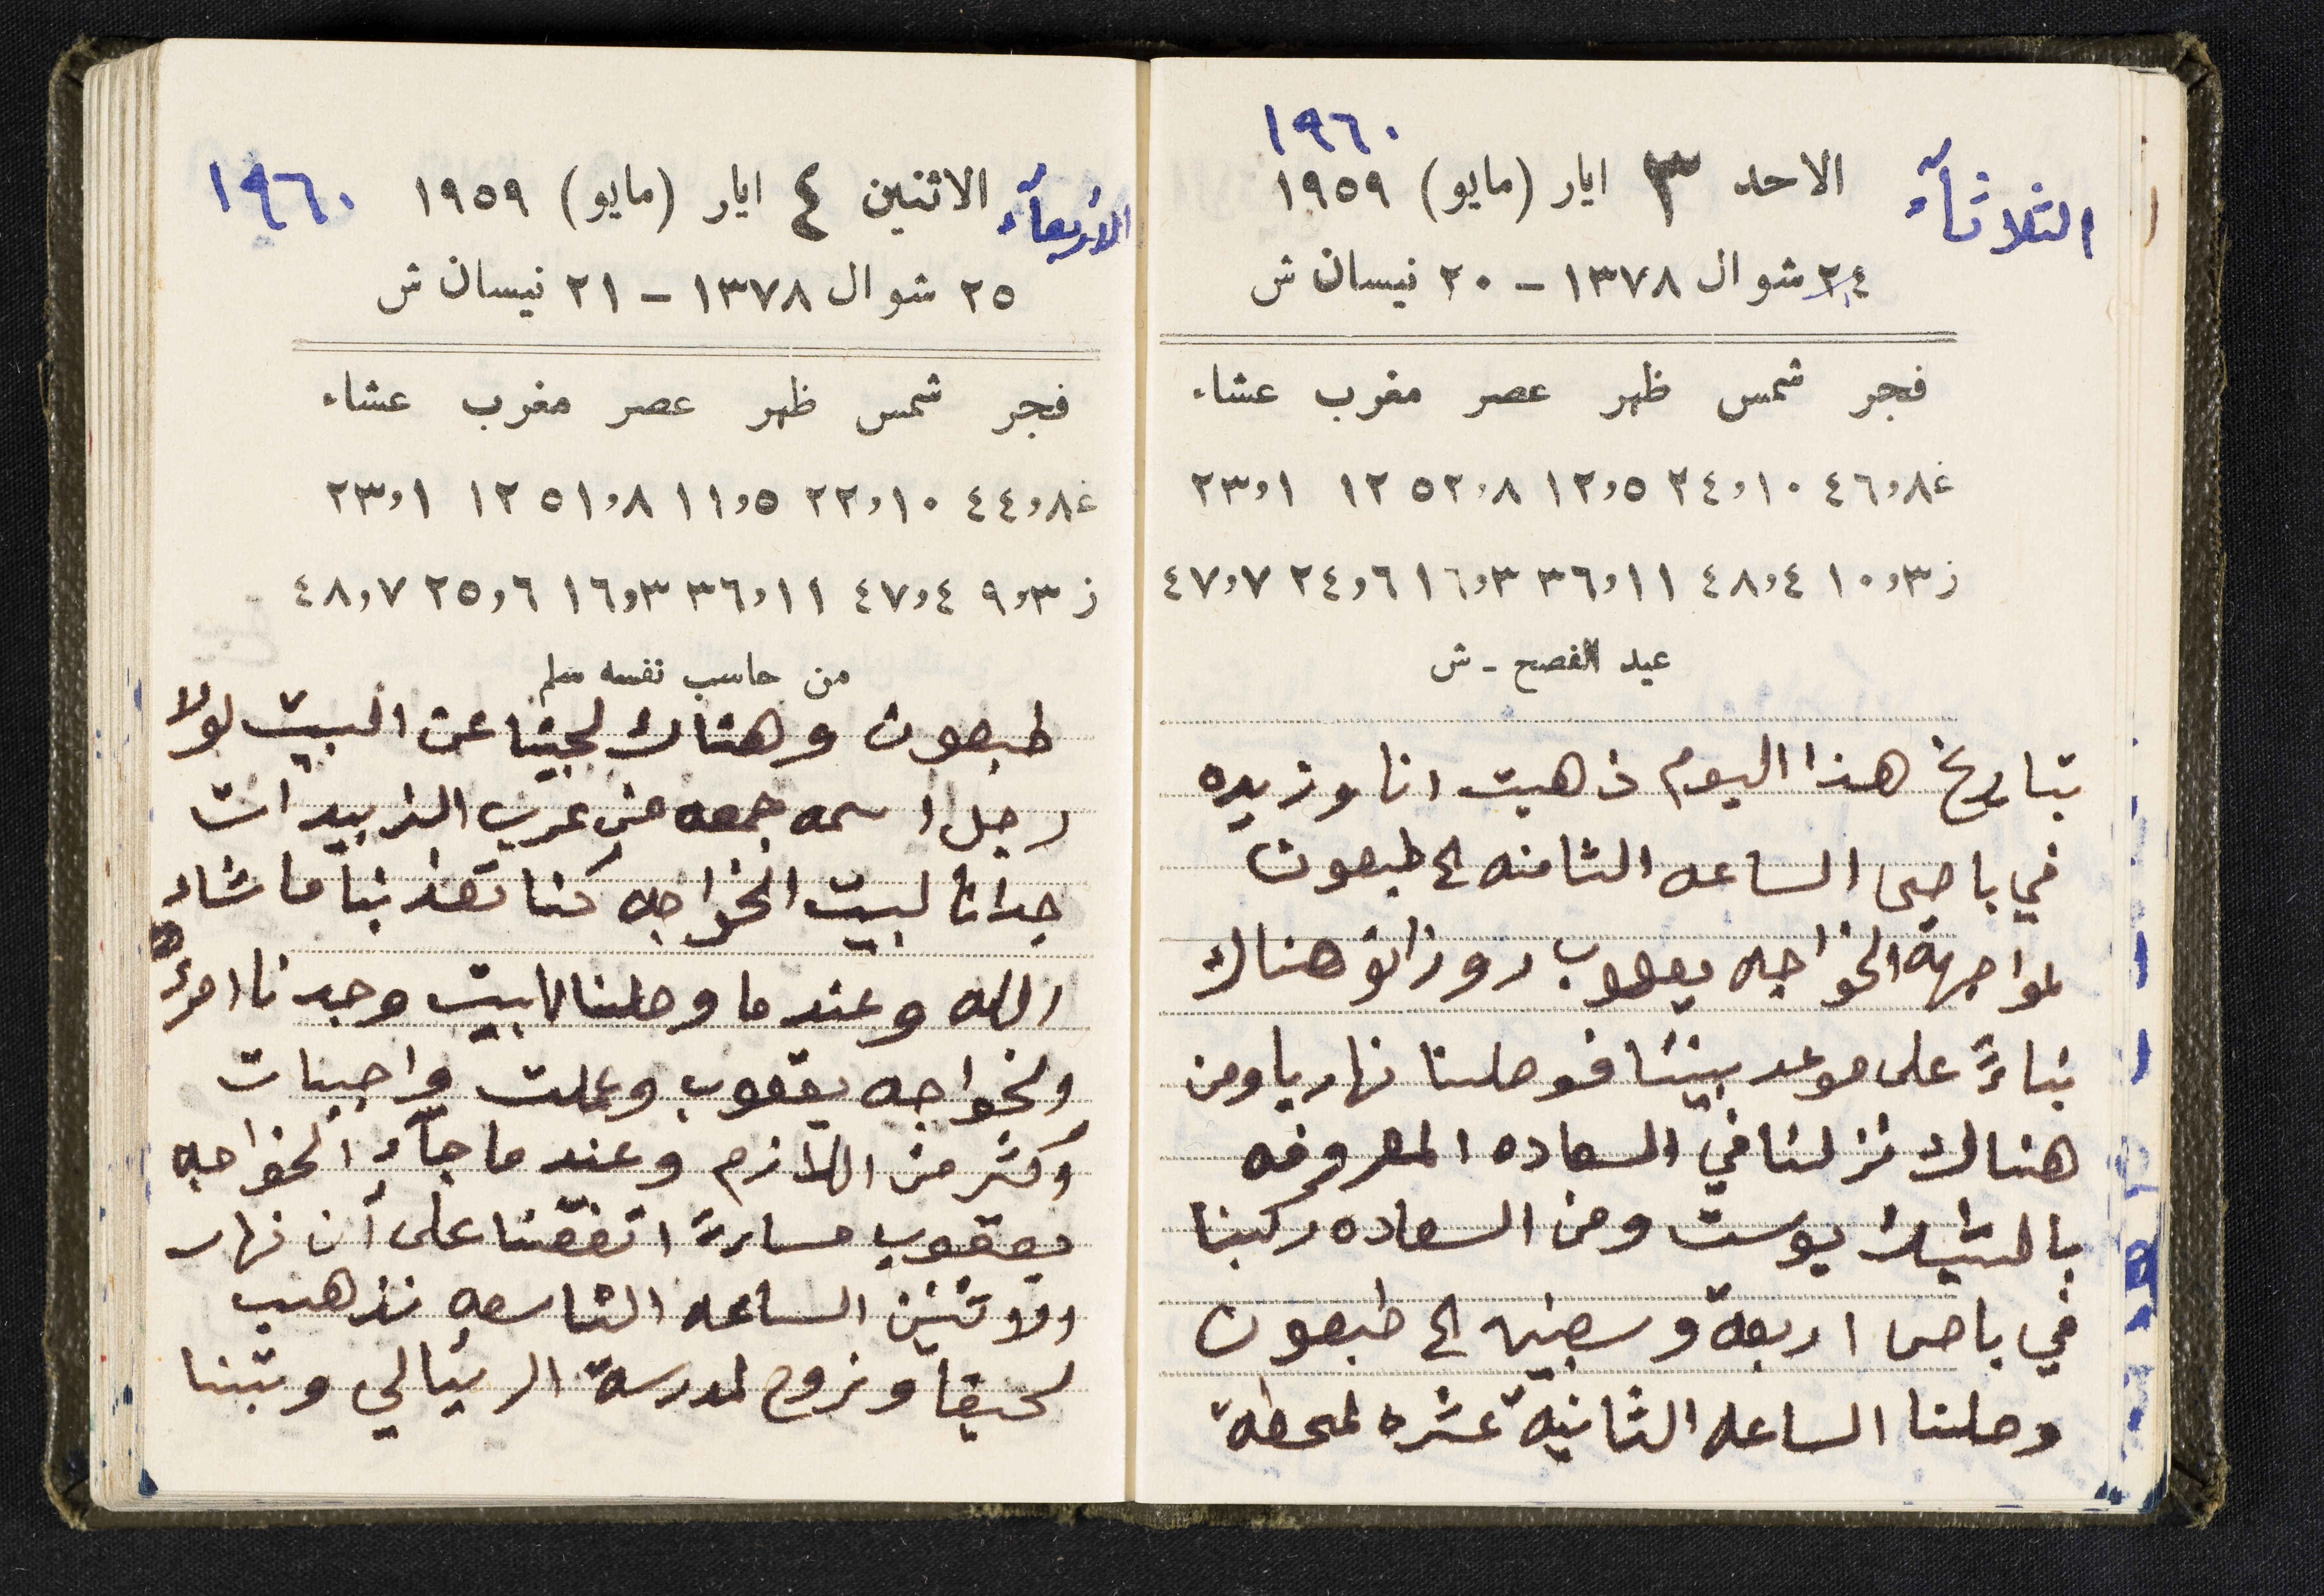 ١٩٦٠
الثلاثآء
الاحد ٣ ايار (مايو) ١٩٥٩
٢٤ شوال ١٣٧٨ – ٢٠ نيسان ش
فجر شمس ظهر عصر مغرب عشاء
غ ٤٦,٨ ٢٤,١٠ ١٢,٥ ٥٢,٨ ١٢ ٢٣,١
ز ١٠,٣ ٤٨,٤ ٣٦,١١ ١٦,٣ ٢٤,٦ ٤٧,٧
عيد الفصح - ش
بتاريخ هذا اليوم ذهبت انا وزيده
في باص الساعه الثامنه الى طبعون
لمواجهة الخواجه يعقوب روزانو هناك
بناءً على موعد بيننا فوصلنا نهاريا ومن
هناك نزلنا في السعاده المعروفه
بالتشيك بوست ومن السعاده ركبنا
في باص اربعة وسبعين الى طبعون
وصلنا الساعه الثانية عشره لمحطة
الاربعآء
الاثنين ٤ ايار (مايو) ١٩٥٩
١٩٦٠
٢٥ شوال ١٣٧٨ – ٢١ نيسان ش
فجر شمس ظهر عصر مغرب عشاء
غ ٤٤,٨ ٢٢,١٠ ١١,٥ ٥١,٨ ١٢ ٢٣,١
ز ٩,٣ ٤٧,٤ ٣٦,١١ ١٦,٣ ٢٥,٦ ٤٨,٧
من حاسب نفسه سلم
طبعون وهناك لجينا عن البيت لولا
رجل اسمه جمعه من عرب الزبيدات
جدانا لبيت الخواجه كنا تعذبنا ماشاء
الله وعندما وصلنا لابيت وجدنا امرءة
الخواجه يعقوب وعملت واجبات
اكثر من اللازم وعندما جآء الخواجه
يعقوب مساءً اتفقنا على أن نهار
الاثنين الساعه التاسعه نذهب
لحيفا ونروح لمدرسة الريئالي وبتنا